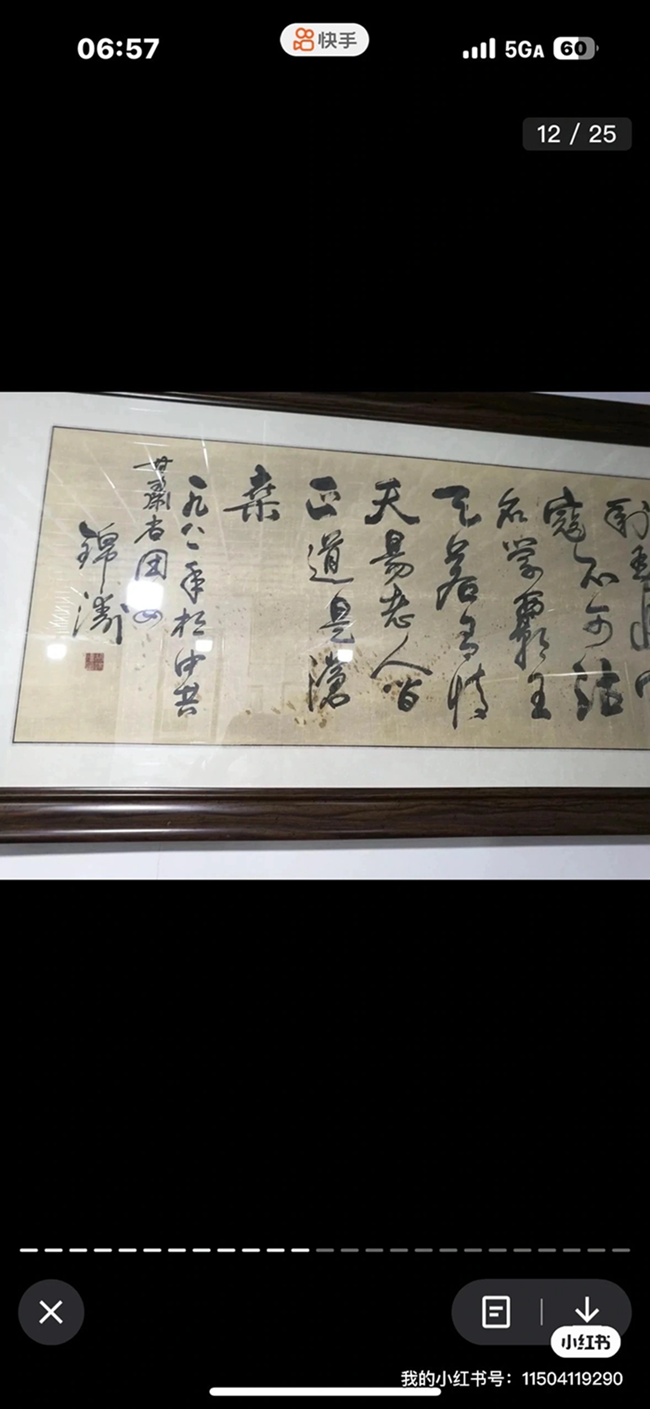 06:57
快手
5GA
60
12 / 25
剩
寇不可沽
名学霸王
天若有情
天易老人间
正道是沧
桒
一九八一年于中共
甘肃省团委
锦涛
小红书
我的小红书号：11504119290